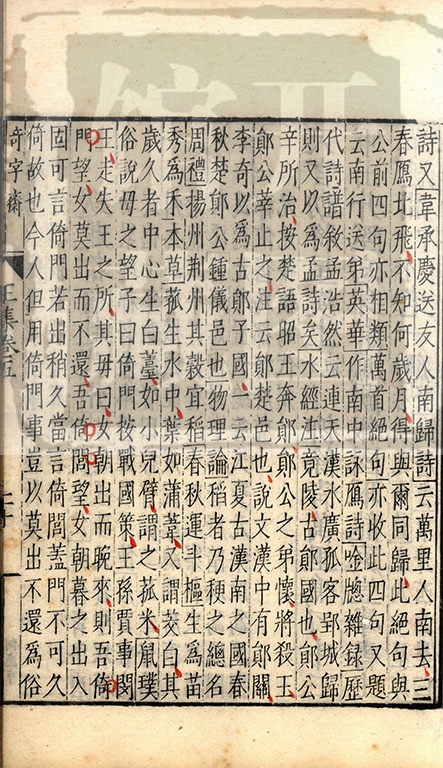 詩又韋承慶送友人南歸詩云萬里人南去三
春鴈北飛不知何歲月得與爾同歸此絕句與
公前四句亦相類萬首絕句亦收此四句又題
云南行送弟英華作南中詠鴈詩唫牕雜録歷
代詩譜敘孟浩然云連天漢水廣孤客郢城歸
則又以爲孟詩矣水經注竟陵古鄖國也鄖公
辛所治按楚語昭王奔鄖鄖公之弟懷將殺王
鄖公莘止之注云鄖楚邑也說文漢中有鄖關
李奇以爲古鄖子國一云江夏古漢南之國春
秋楚鄖公鍾儀邑也物理論稻者乃稉之總名
周禮揚州荆州其穀宜稻春秋運斗樞生爲苗
秀爲禾本草菰生水中葉如蒲葦又謂茭白其
歲久者中心生白薹如小兒臂謂之菰米鼠璞
俗說母之望子曰倚門按戰國策王孫賈事閔
王走失王之所其毋曰女朝出而晚來則吾倚
門望女莫出而不還吾倚閭望女朝暮之出入
固可言倚門若出稍久當言倚閭葢門不可久
倚故也今人但用倚門事豈以莫出不還爲俗
奇字齋
卷五